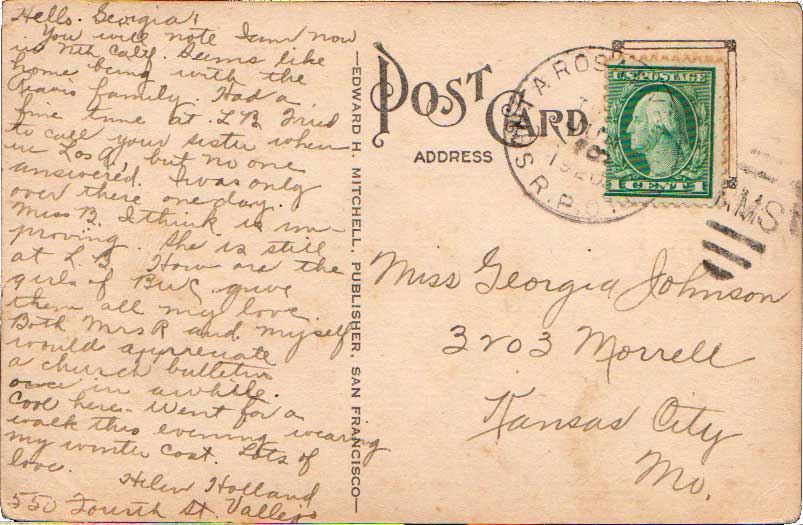 Hello. Georgia:
You will note I am now
in Nth Calif. Seems like
home being with the
family. Had a
fine time at L B. Tried
to call your sister when
in Los A, but no one
answered. I was only
over there one day.
Miss B. I think is im-
proving. She is still
at L B. How are the
girls of BUC, give
them all my love.
Both Mrs R and myself
would appreciate
a church bulletin
once in awhile.
Cool here. Went for a
walk this evening wearing
my winter coat. Lots of
love.
Helen Holland
550 Fourth St. Vallejo
—EDWARD H. MITCHELL, PUBLISHER, SAN FRANCISCO—
POST CARD
ADDRESS
U.S. POSTAGE
1 CENT 1
R.P.O.
1920
RMS
Miss Georgia Johnson
3203 Morrell
Kansas City
Mo.